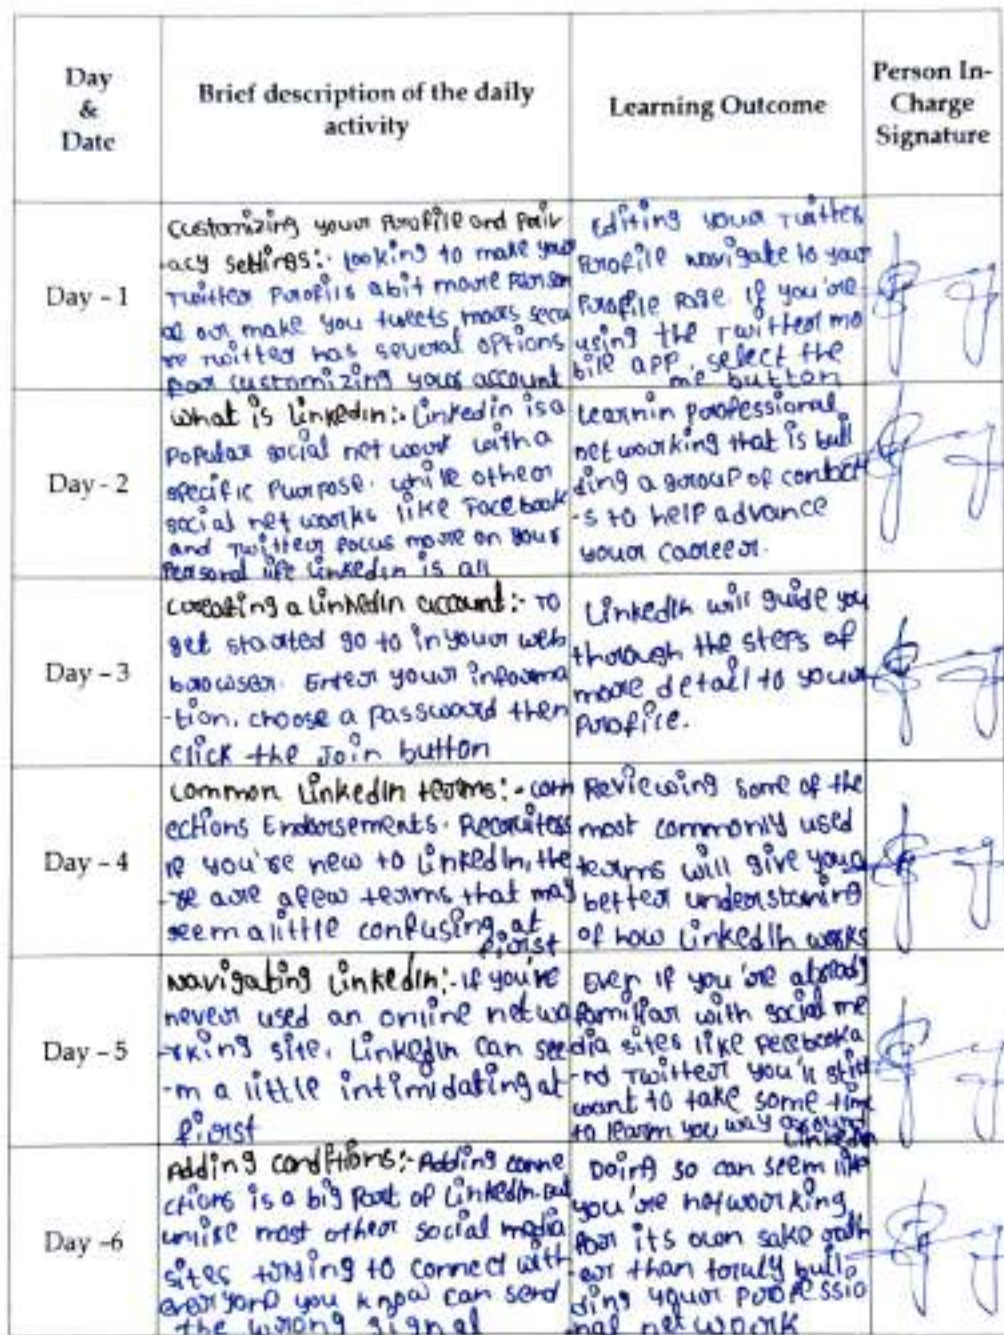 Day
&
Date
Brief description of the daily
activity
Learning Outcome
Person In-
Charge
Signature
Day - 1
Customizing your Profile and Priv
-acy settings:- looking to make your
Twitter Profils abit more Person
al or make you tweets more secu
re Twitter has several options
For customizing your account
Editing your Twitter
Profile navigate to your
Profile Page. If you're
using the Twitter mo
bile app, select the
me button
Day - 2
What is LinkedIn:- Linkedin is a
Popular social network with a
specific Purpose. while other
social networks like Facebook
and Twitter focus more on your
Personal life Linkedin is all
Learnin professional
networking that is buil
ding a group of contact
-s to help advance
your career.
Day - 3
Creating a LinkedIn account:- To
get started go to in your web
browser. Enter your informa
-tion, choose a password then
click the Join button
LinkedIn will guide you
through the steps of
more detail to your
Profile.
Day - 4
Common LinkedIn terms:- conn
ections Endorsements. Recruiters
if you're new to LinkedIn, the
-re are afew terms that may
seem a little confusing at
first
Reviewing some of the
most commonly used
terms will give you a
better understaning
of how LinkedIn works
Day - 5
Navigating LinkedIn:- if you're
never used an online netwo
-rking site, LinkedIn can see
-m a little intimidating at
first
Even if you're already
familiar with social me
dia sites like Facebook a
-nd Twitter you'll still
want to take some time
to learn you way around
LinkedIn
Day -6
Adding conditions:- Adding conne
ctions is a big Part of LinkedIn. But
unlike most other social media
sites trying to connect with
everyone you know can send
the wrong signal
Doing so can seem like
you're networking
for its own sake rath
-er than truly buil
ding your professio
-nal network